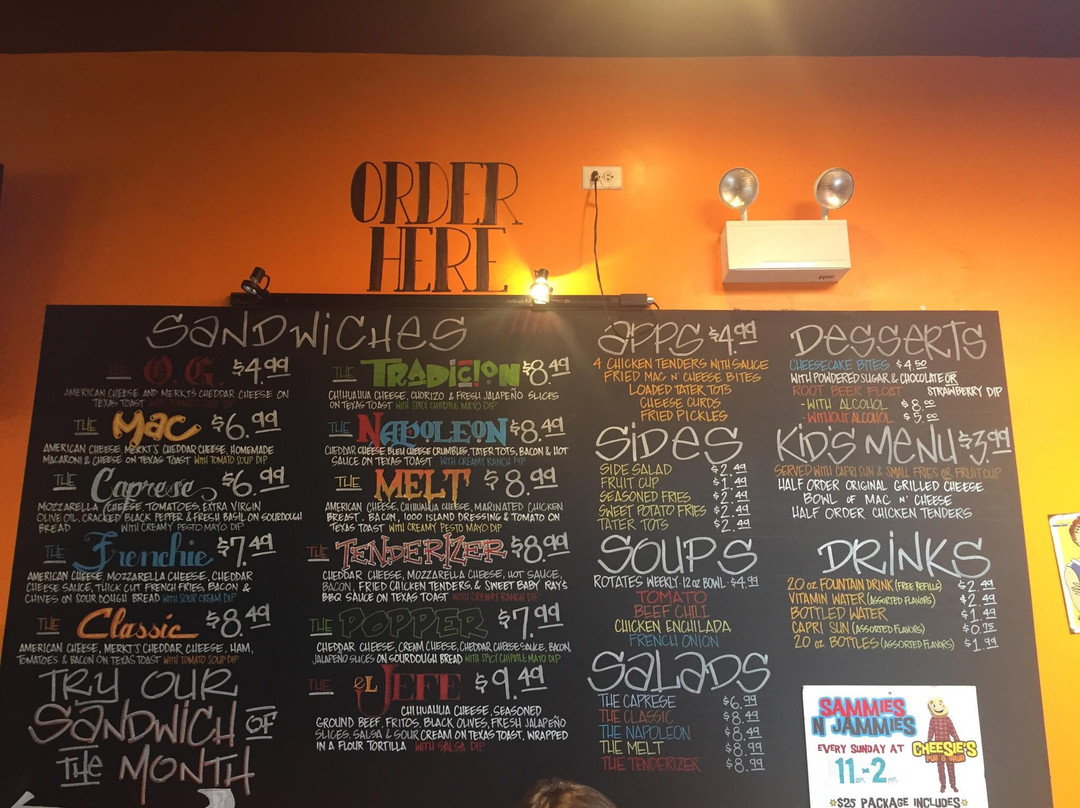 ORDER
HERE
SANDWICHES
THE O.G. $4.99
AMERICAN CHEESE AND MERKTS CHEDDAR CHEESE ON
TEXAS TOAST
THE MAC $6.99
AMERICAN CHEESE, MERKT'S CHEDDAR CHEESE, HOMEMADE
MACARONI & CHEESE ON TEXAS TOAST WITH TOMATO SOUP DIP
THE Caprese $6.99
MOZZARELLA CHEESE, TOMATOES, EXTRA VIRGIN
OLIVE OIL, CRACKED BLACK PEPPER & FRESH BASIL ON SOURDOUGH
BREAD WITH CREAMY PESTO MAYO DIP
THE Frenchie $7.49
AMERICAN CHEESE, MOZZARELLA CHEESE, CHEDDAR
CHEESE SAUCE, THICK CUT FRENCH FRIES, BACON &
CHIVES ON SOUR DOUGH BREAD WITH SOUR CREAM DIP
THE Classic $8.49
AMERICAN CHEESE, MERKT'S CHEDDAR CHEESE, HAM,
TOMATOES & BACON ON TEXAS TOAST WITH TOMATO SOUP DIP
TRY OUR
SANDWICH OF
THE MONTH
THE TRADICION $8.49
CHIHUAHUA CHEESE, CHORIZO & FRESH JALAPEÑO SLICES
ON TEXAS TOAST WITH SPICY CHIPOTLE MAYO DIP
THE NAPOLEON $8.49
CHEDDAR CHEESE, BLEU CHEESE CRUMBLES, TATER TOTS, BACON & HOT
SAUCE ON TEXAS TOAST WITH CREAMY RANCH DIP
THE MELT $8.99
AMERICAN CHEESE, CHIHUAHUA CHEESE, MARINATED CHICKEN
BREAST, BACON, 1000 ISLAND DRESSING & TOMATO ON
TEXAS TOAST WITH CREAMY PESTO MAYO DIP
THE TENDERIZER $8.99
CHEDDAR CHEESE, MOZZARELLA CHEESE, HOT SAUCE,
BACON, FRIED CHICKEN TENDERS, & SWEET BABY RAY'S
BBQ SAUCE ON TEXAS TOAST WITH CREAMY RANCH DIP
THE POPPER $7.99
CHEDDAR CHEESE, CREAM CHEESE, CHEDDAR CHEESE SAUCE, BACON,
JALAPEÑO SLICES ON SOURDOUGH BREAD WITH SPICY CHIPOTLE MAYO DIP
THE EL JEFE $9.49
CHIHUAHUA CHEESE, SEASONED
GROUND BEEF, FRITOS, BLACK OLIVES, FRESH JALAPEÑO
SLICES, SALSA & SOUR CREAM ON TEXAS TOAST, WRAPPED
IN A FLOUR TORTILLA WITH SALSA DIP
APPS $4.99
4 CHICKEN TENDERS WITH SAUCE
FRIED MAC N' CHEESE BITES
LOADED TATER TOTS
CHEESE CURDS
FRIED PICKLES
SIDES
SIDE SALAD $2.49
FRUIT CUP $1.49
SEASONED FRIES $2.49
SWEET POTATO FRIES $2.49
TATER TOTS $2.49
SOUPS
ROTATES WEEKLY · 12 OZ BOWL · $4.99
TOMATO
BEEF CHILI
CHICKEN ENCHILADA
FRENCH ONION
SALADS
THE CAPRESE $6.99
THE CLASSIC $8.49
THE NAPOLEON $8.49
THE MELT $8.99
THE TENDERIZER $8.99
DESSERTS
CHEESECAKE BITES $4.50
WITH POWDERED SUGAR & CHOCOLATE OR
STRAWBERRY DIP
ROOT BEER FLOAT
-WITH ALCOHOL $8.00
-WITHOUT ALCOHOL $5.00
KID'S MENU $3.99
SERVED WITH CAPRI SUN & SMALL FRIES OR FRUIT CUP
HALF ORDER ORIGINAL GRILLED CHEESE
BOWL OF MAC N' CHEESE
HALF ORDER CHICKEN TENDERS
DRINKS
20 OZ FOUNTAIN DRINK (FREE REFILLS) $2.49
VITAMIN WATER (ASSORTED FLAVORS) $2.49
BOTTLED WATER $1.49
CAPRI SUN (ASSORTED FLAVORS) $0.75
20 OZ BOTTLES (ASSORTED FLAVORS) $1.99
SAMMIES
N JAMMIES
EVERY SUNDAY AT
11AM-2PM
CHEESIE'S
PUB & GRUB
*$25 PACKAGE INCLUDES*